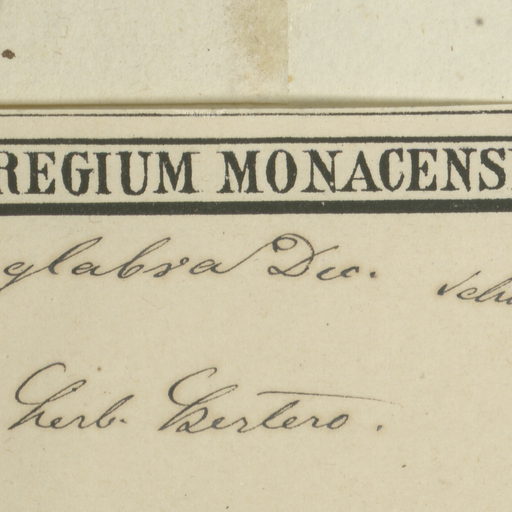 REGIUM MONACENS
glabra Dec.
Herb. Bertero.